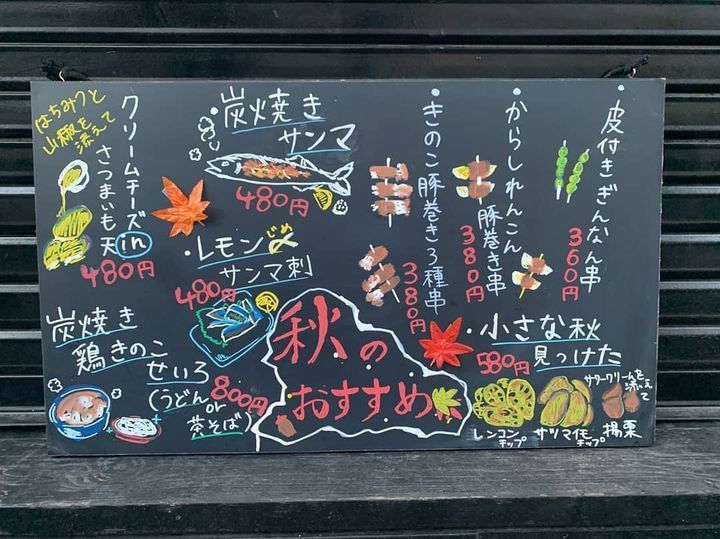 ・皮付きぎんなん串
360円
・からしれんこん
豚巻き串
380円
・きのこ豚巻き3種串
380円
・炭焼き
サンマ
480円
・レモン〆
じめ
サンマ刺
480円
クリームチーズin
さつまいも天
はちみつと
山椒を
添えて
480円
炭焼き
鶏きのこ
せいろ
800円
(うどん
or
茶そば)
秋の
おすすめ
・小さな秋
見っけた
580円
レンコン
チップ
サツマイモ
チップ
サワークリームを
添えて
揚栗